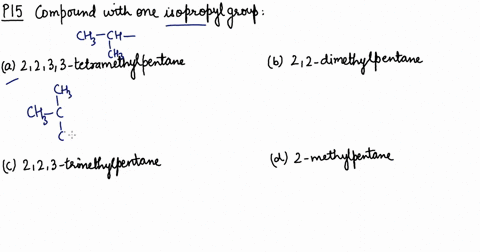 P15 Compound with one isopropyl group:
CH₃–CH–
CH₃
(a) 2,2,3,3-tetramethylpentane
(b) 2,2-dimethylpentane
CH₃
CH₃–C
C
(c) 2,2,3-trimethylpentane
(d) 2-methylpentane